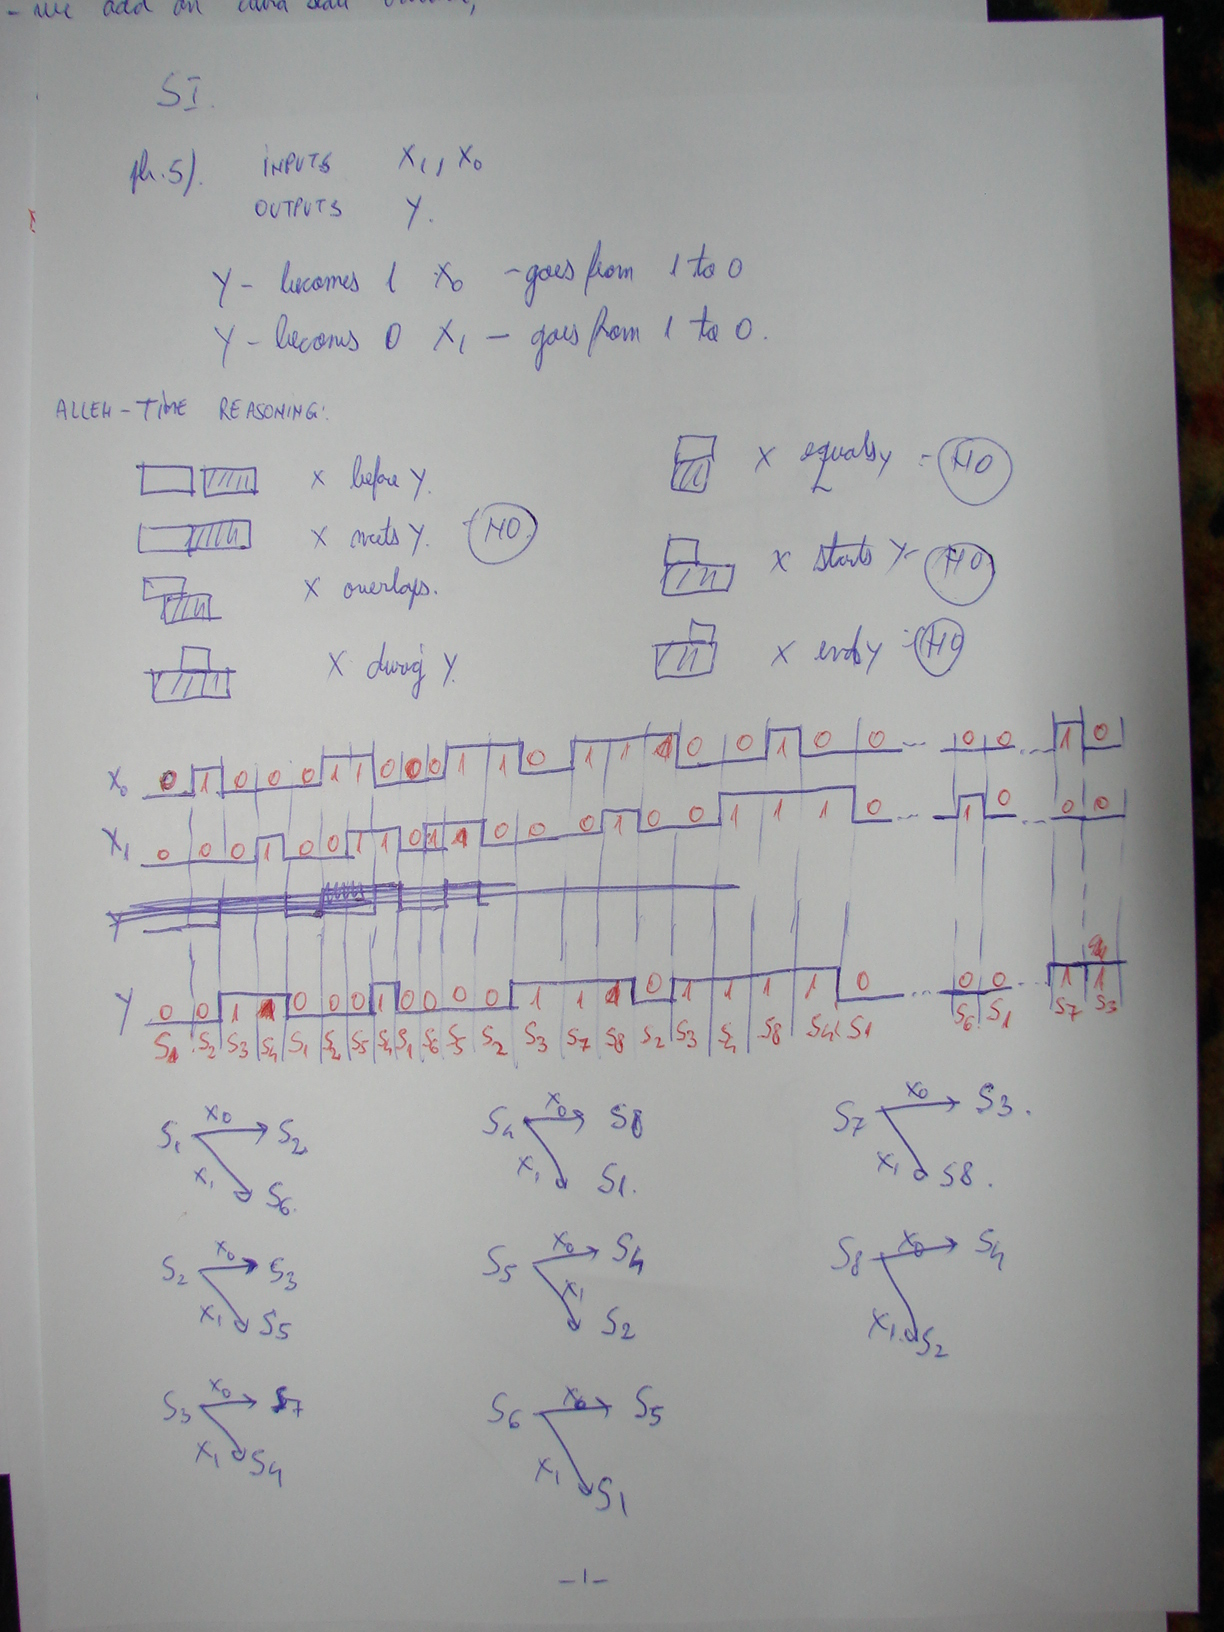 - we add an
SI.
Pr.5). INPUTS X1, X0
OUTPUTS Y.
Y - becomes 1 X0 - goes from 1 to 0
Y - becoms 0 X1 - goes from 1 to 0.
ALLEN - TIME REASONING:
X before Y.
X meets Y. - NO.
X overlaps.
X durig Y.
X equals Y - NO
X starts Y - NO
X ends Y - NO
X0 0 1 0 0 0 1 1 0 0 0 1 1 0 1 1 1 0 0 1 0 0 ... 0 0 ... 1 0
X1 0 0 0 1 0 0 1 1 0 1 1 0 0 0 1 0 0 1 1 1 0 ... 1 0 ... 0 0
Y
Y 0 0 1 1 0 0 0 1 0 0 0 0 1 1 1 0 1 1 1 1 0 ... 0 0 ... 1 1
S1 S2 S3 S4 S1 S2 S5 S4 S1 S6 S5 S2 S3 S7 S8 S2 S3 S4 S8 S4 S1 S6 S1 S7 S3
S1 X0 S2
X1 S6.
S4 X0 S8
X1 S1.
S7 X0 S3.
X1 S8.
S2 X0 S3
X1 S5
S5 X0 S4
X1 S2
S8 X0 S4
X1 S2
S3 X0 S7
X1 S4
S6 X0 S5
X1 S1
-1-